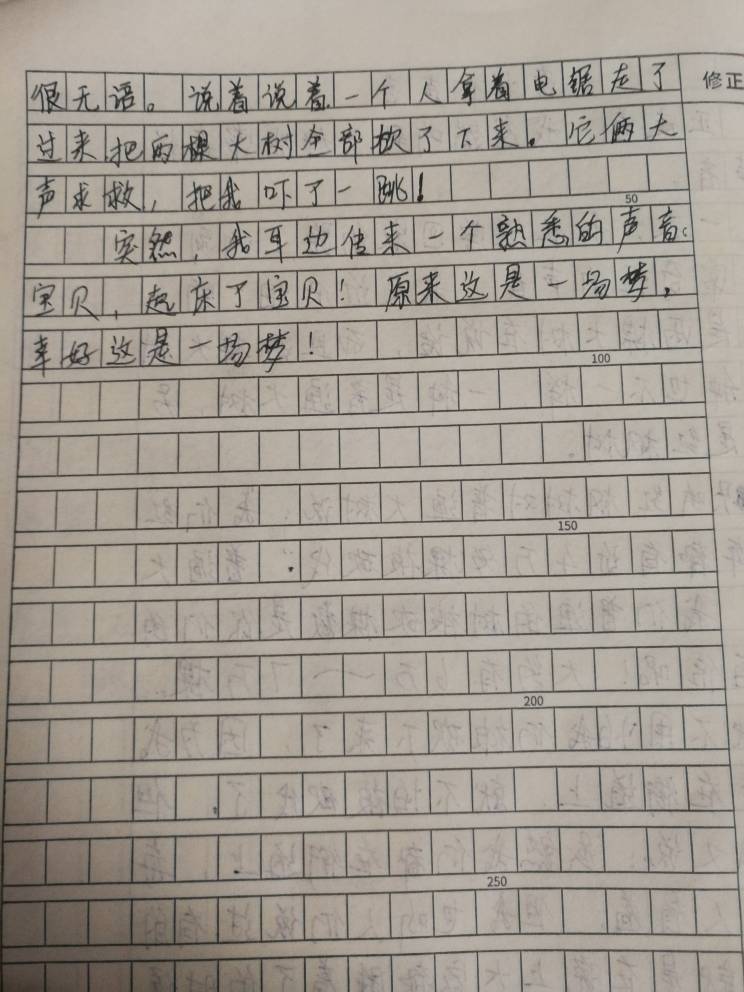 修正
很无语。说着说着一个人拿着电锯走了
过来把两棵大树全部砍了下来。它俩大
声求救，把我吓了一跳！
50
突然，我耳边传来一个熟悉的声音：
宝贝，起床了宝贝！原来这是一场梦，
幸好这是一场梦！
100
150
200
250